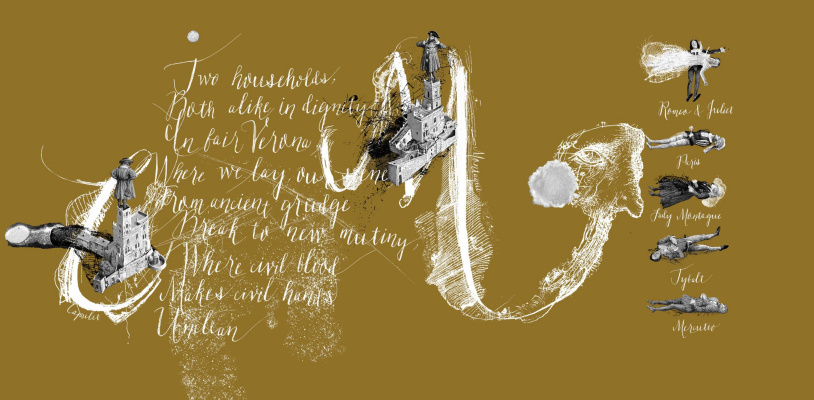 Two households.
Both alike in dignity
In fair Verona
Where we lay our scene
From ancient grudge
Break to new mutiny
Where civil blood
Makes civil hands
Unclean
Capulet
Romeo & Juliet
Paris
Lady Montague
Tybalt
Mercutio